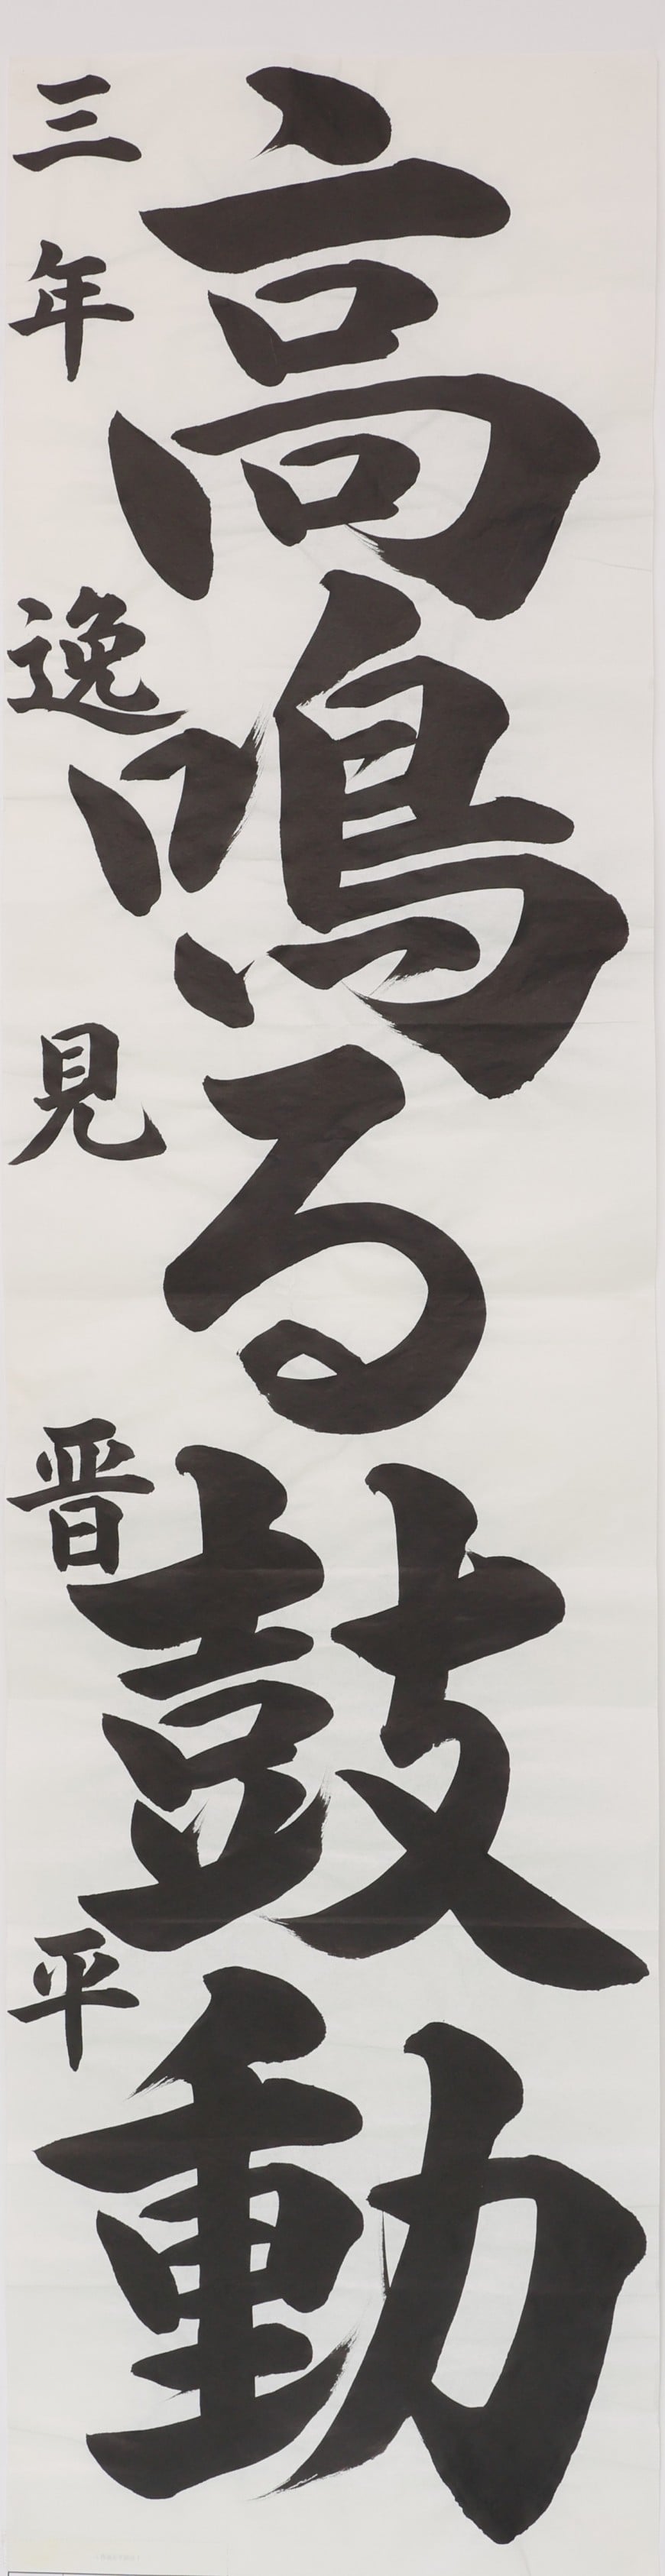 高鳴る鼓動
三年 逸見 晋平